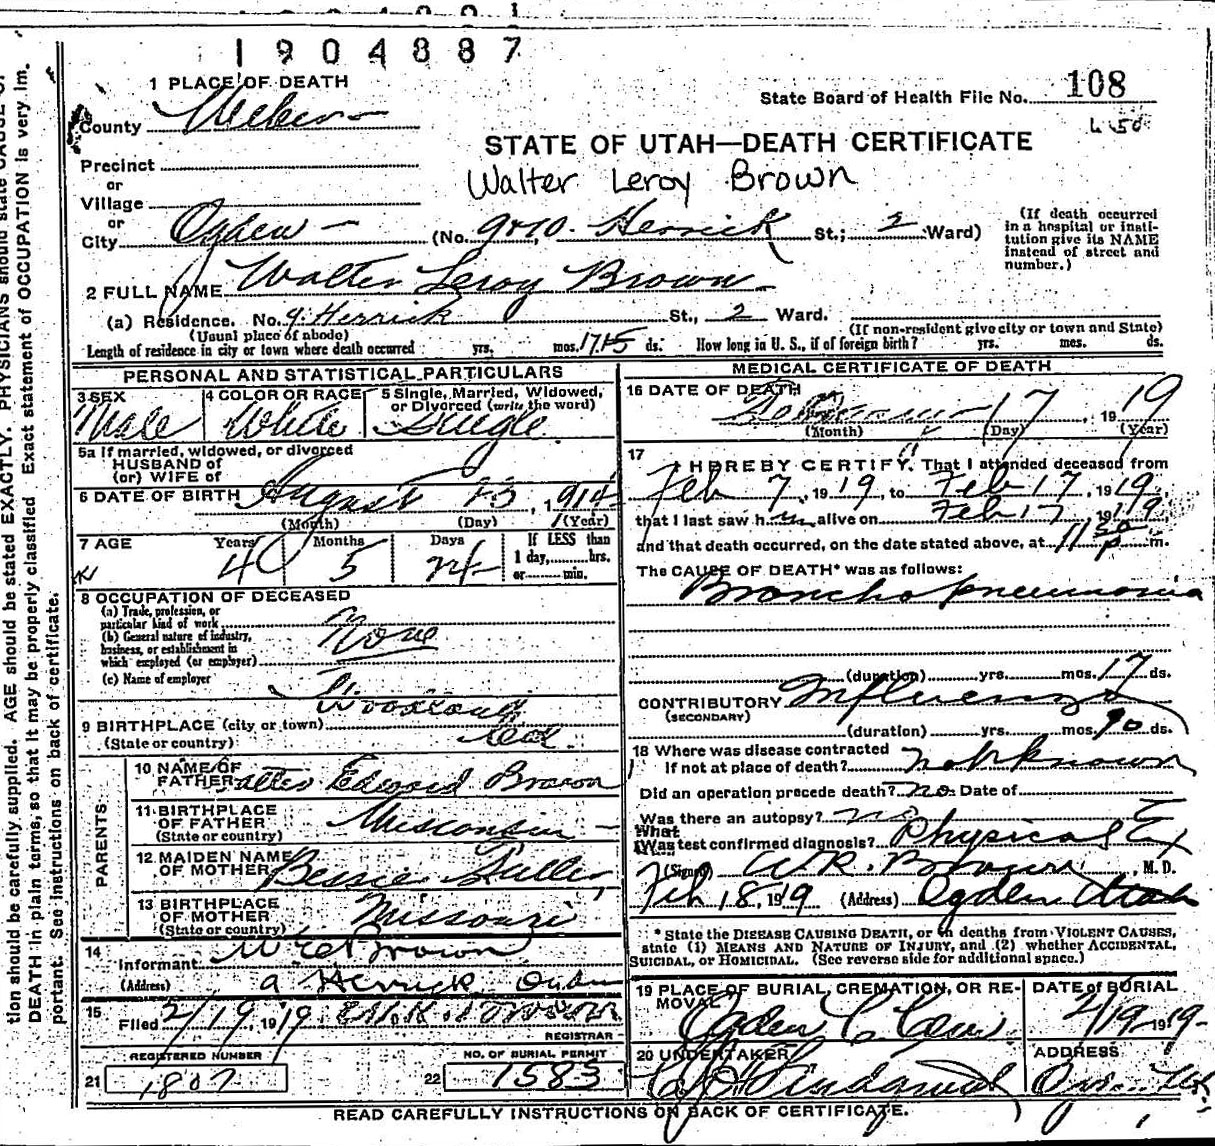 1904887
1 PLACE OF DEATH
State Board of Health File No. 108
County Weber
STATE OF UTAH—DEATH CERTIFICATE
Precinct
or
Walter Leroy Brown
Village
or
City Ogden (No. Herrick St.; 2 Ward)
(If death occurred in a hospital or insti-
tution give its NAME instead of street and number.)
2 FULL NAME Walter Leroy Brown
(a) Residence. No. 9 Herrick St., 2 Ward.
(Usual place of abode) (If non-resident give city or town and State)
Length of residence in city or town where death occurred yrs. mos. ds. How long in U. S., if of foreign birth? yrs. mos. ds.
PERSONAL AND STATISTICAL PARTICULARS
3 SEX Male
4 COLOR OR RACE White
5 Single, Married, Widowed, or Divorced (write the word) Single
5a If married, widowed, or divorced
HUSBAND of
(or) WIFE of
6 DATE OF BIRTH August 1914
(Month) (Day) (Year)
7 AGE Years 4 Months 5 Days 24 If LESS than
1 day, hrs.
or min.
8 OCCUPATION OF DECEASED
(a) Trade, profession, or
particular kind of work None
(b) General nature of industry,
business, or establishment in
which employed (or employer)
(c) Name of employer
9 BIRTHPLACE (city or town)
(State or country)
PARENTS
10 NAME OF
FATHER Walter Edward Brown
11 BIRTHPLACE
OF FATHER Wisconsin
(State or country)
12 MAIDEN NAME
OF MOTHER Bessie
13 BIRTHPLACE
OF MOTHER Missouri
(State or country)
14
Informant W E Brown
(Address) 9 Herrick
15
Filed 2/19, 1919
REGISTRAR
REGISTERED NUMBER
21 1807
NO. OF BURIAL PERMIT
22 1583
MEDICAL CERTIFICATE OF DEATH
16 DATE OF DEATH
February 17, 1919
(Month) (Day) (Year)
17
I HEREBY CERTIFY, That I attended deceased from
Feb 7, 1919, to Feb 17, 1919,
that I last saw him alive on Feb 17, 1919,
and that death occurred, on the date stated above, at 11 30 p m.
The CAUSE OF DEATH* was as follows:
Broncho pneumonia
(duration) yrs. mos. 17 ds.
CONTRIBUTORY Influenza
(SECONDARY)
(duration) yrs. mos. ds.
18 Where was disease contracted
If not at place of death? not known
Did an operation precede death? no Date of
Was there an autopsy? no
What
Was test confirmed diagnosis? Physical Ex
(Signed) W.R. Brown, M. D.
Feb 18, 1919 (Address) Ogden Utah
* State the DISEASE CAUSING DEATH, or in deaths from VIOLENT CAUSES,
state (1) MEANS AND NATURE OF INJURY, and (2) whether ACCIDENTAL,
SUICIDAL, or HOMICIDAL. (See reverse side for additional space.)
19 PLACE OF BURIAL, CREMATION, OR RE-
MOVAL
Ogden C Cem
DATE of BURIAL
2/19 1919
20 UNDERTAKER
ADDRESS
READ CAREFULLY INSTRUCTIONS ON BACK OF CERTIFICATE.
tion should be carefully supplied. AGE should be stated EXACTLY. PHYSICIANS should state CAUSE OF
DEATH in plain terms, so that it may be properly classified. Exact statement of OCCUPATION is very im-
portant. See instructions on back of certificate.